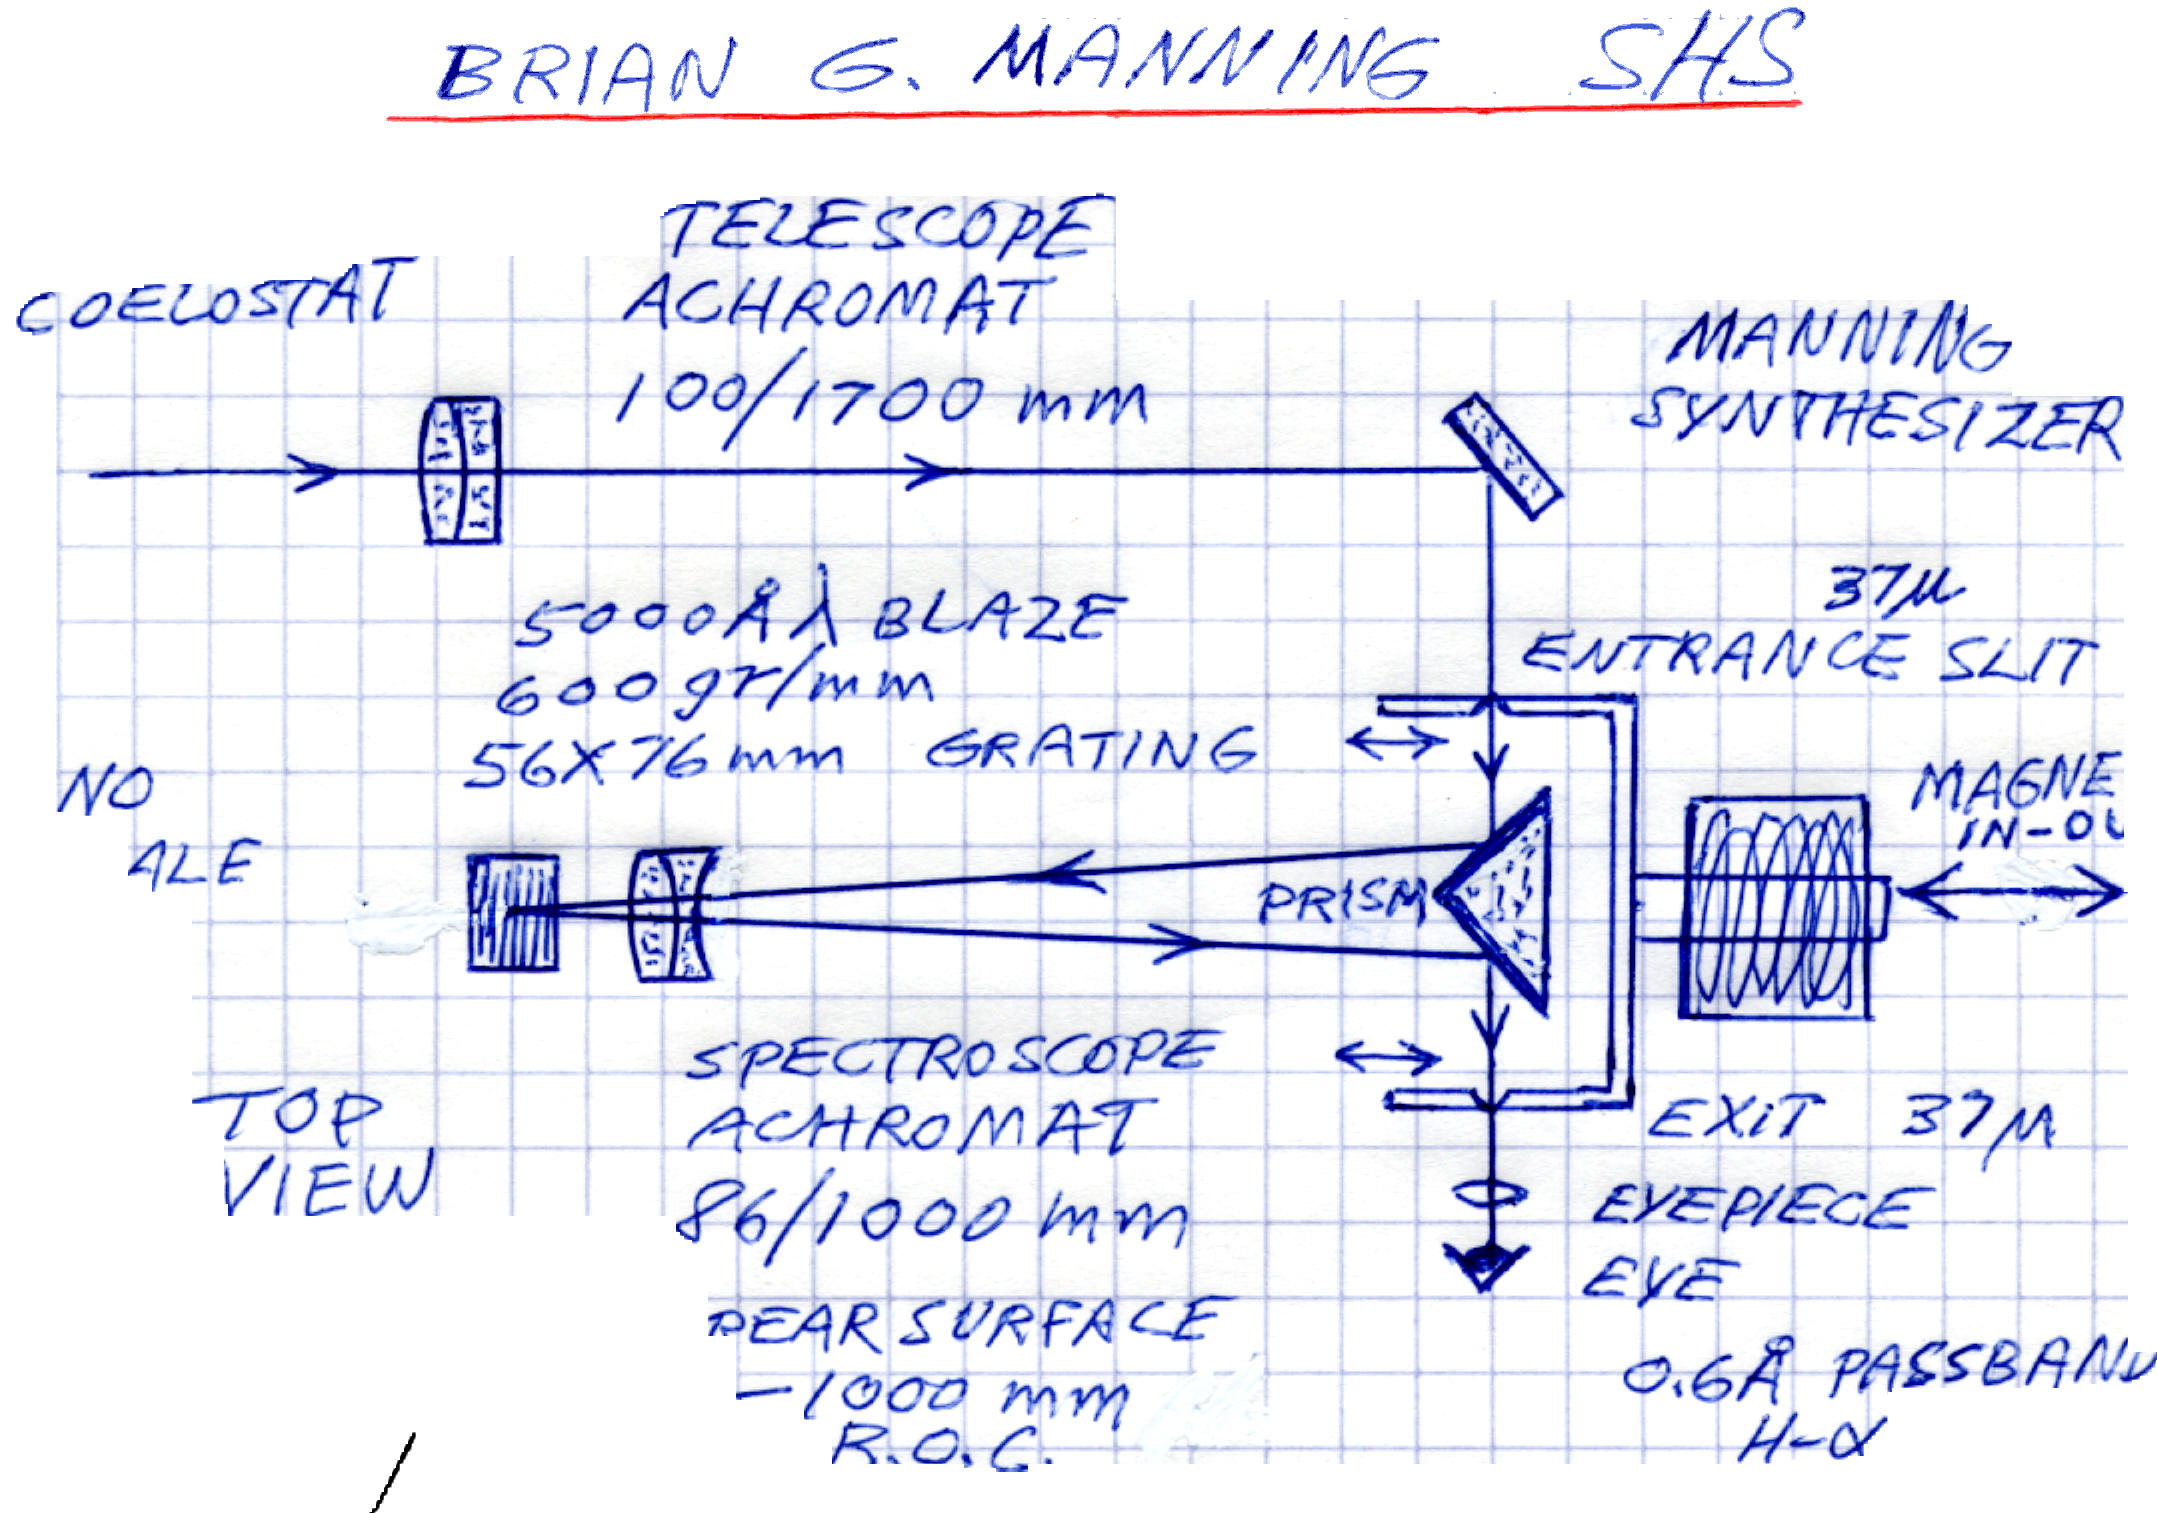 BRIAN G. MANNING SHS
TELESCOPE
ACHROMAT
100/1700 mm
COELOSTAT
MANNING
SYNTHESIZER
5000Å λ BLAZE
600 gr/mm
56X76 mm GRATING
37µ
ENTRANCE SLIT
NO
ALE
MAGNE
IN-OU
PRISM
TOP
VIEW
SPECTROSCOPE
ACHROMAT
86/1000 mm
REAR SURFACE
-1000 mm
R.O.C.
EXiT 37µ
EYEPIECE
EYE
0.6Å PASSBAND
H-α